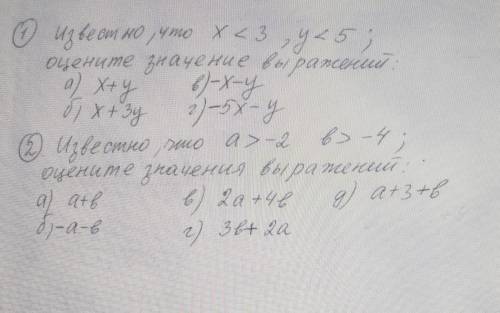 ① Известно, что x < 3 , y < 5 ;
оцените значение выражений:
а) x+y в) -x-y
б) x+3y г) -5x-y
② Известно, что a > -2 в > -4 ;
оцените значения выражений:
а) a+в в) 2a+4в д) a+3+в
б) -a-в г) 3в+2a